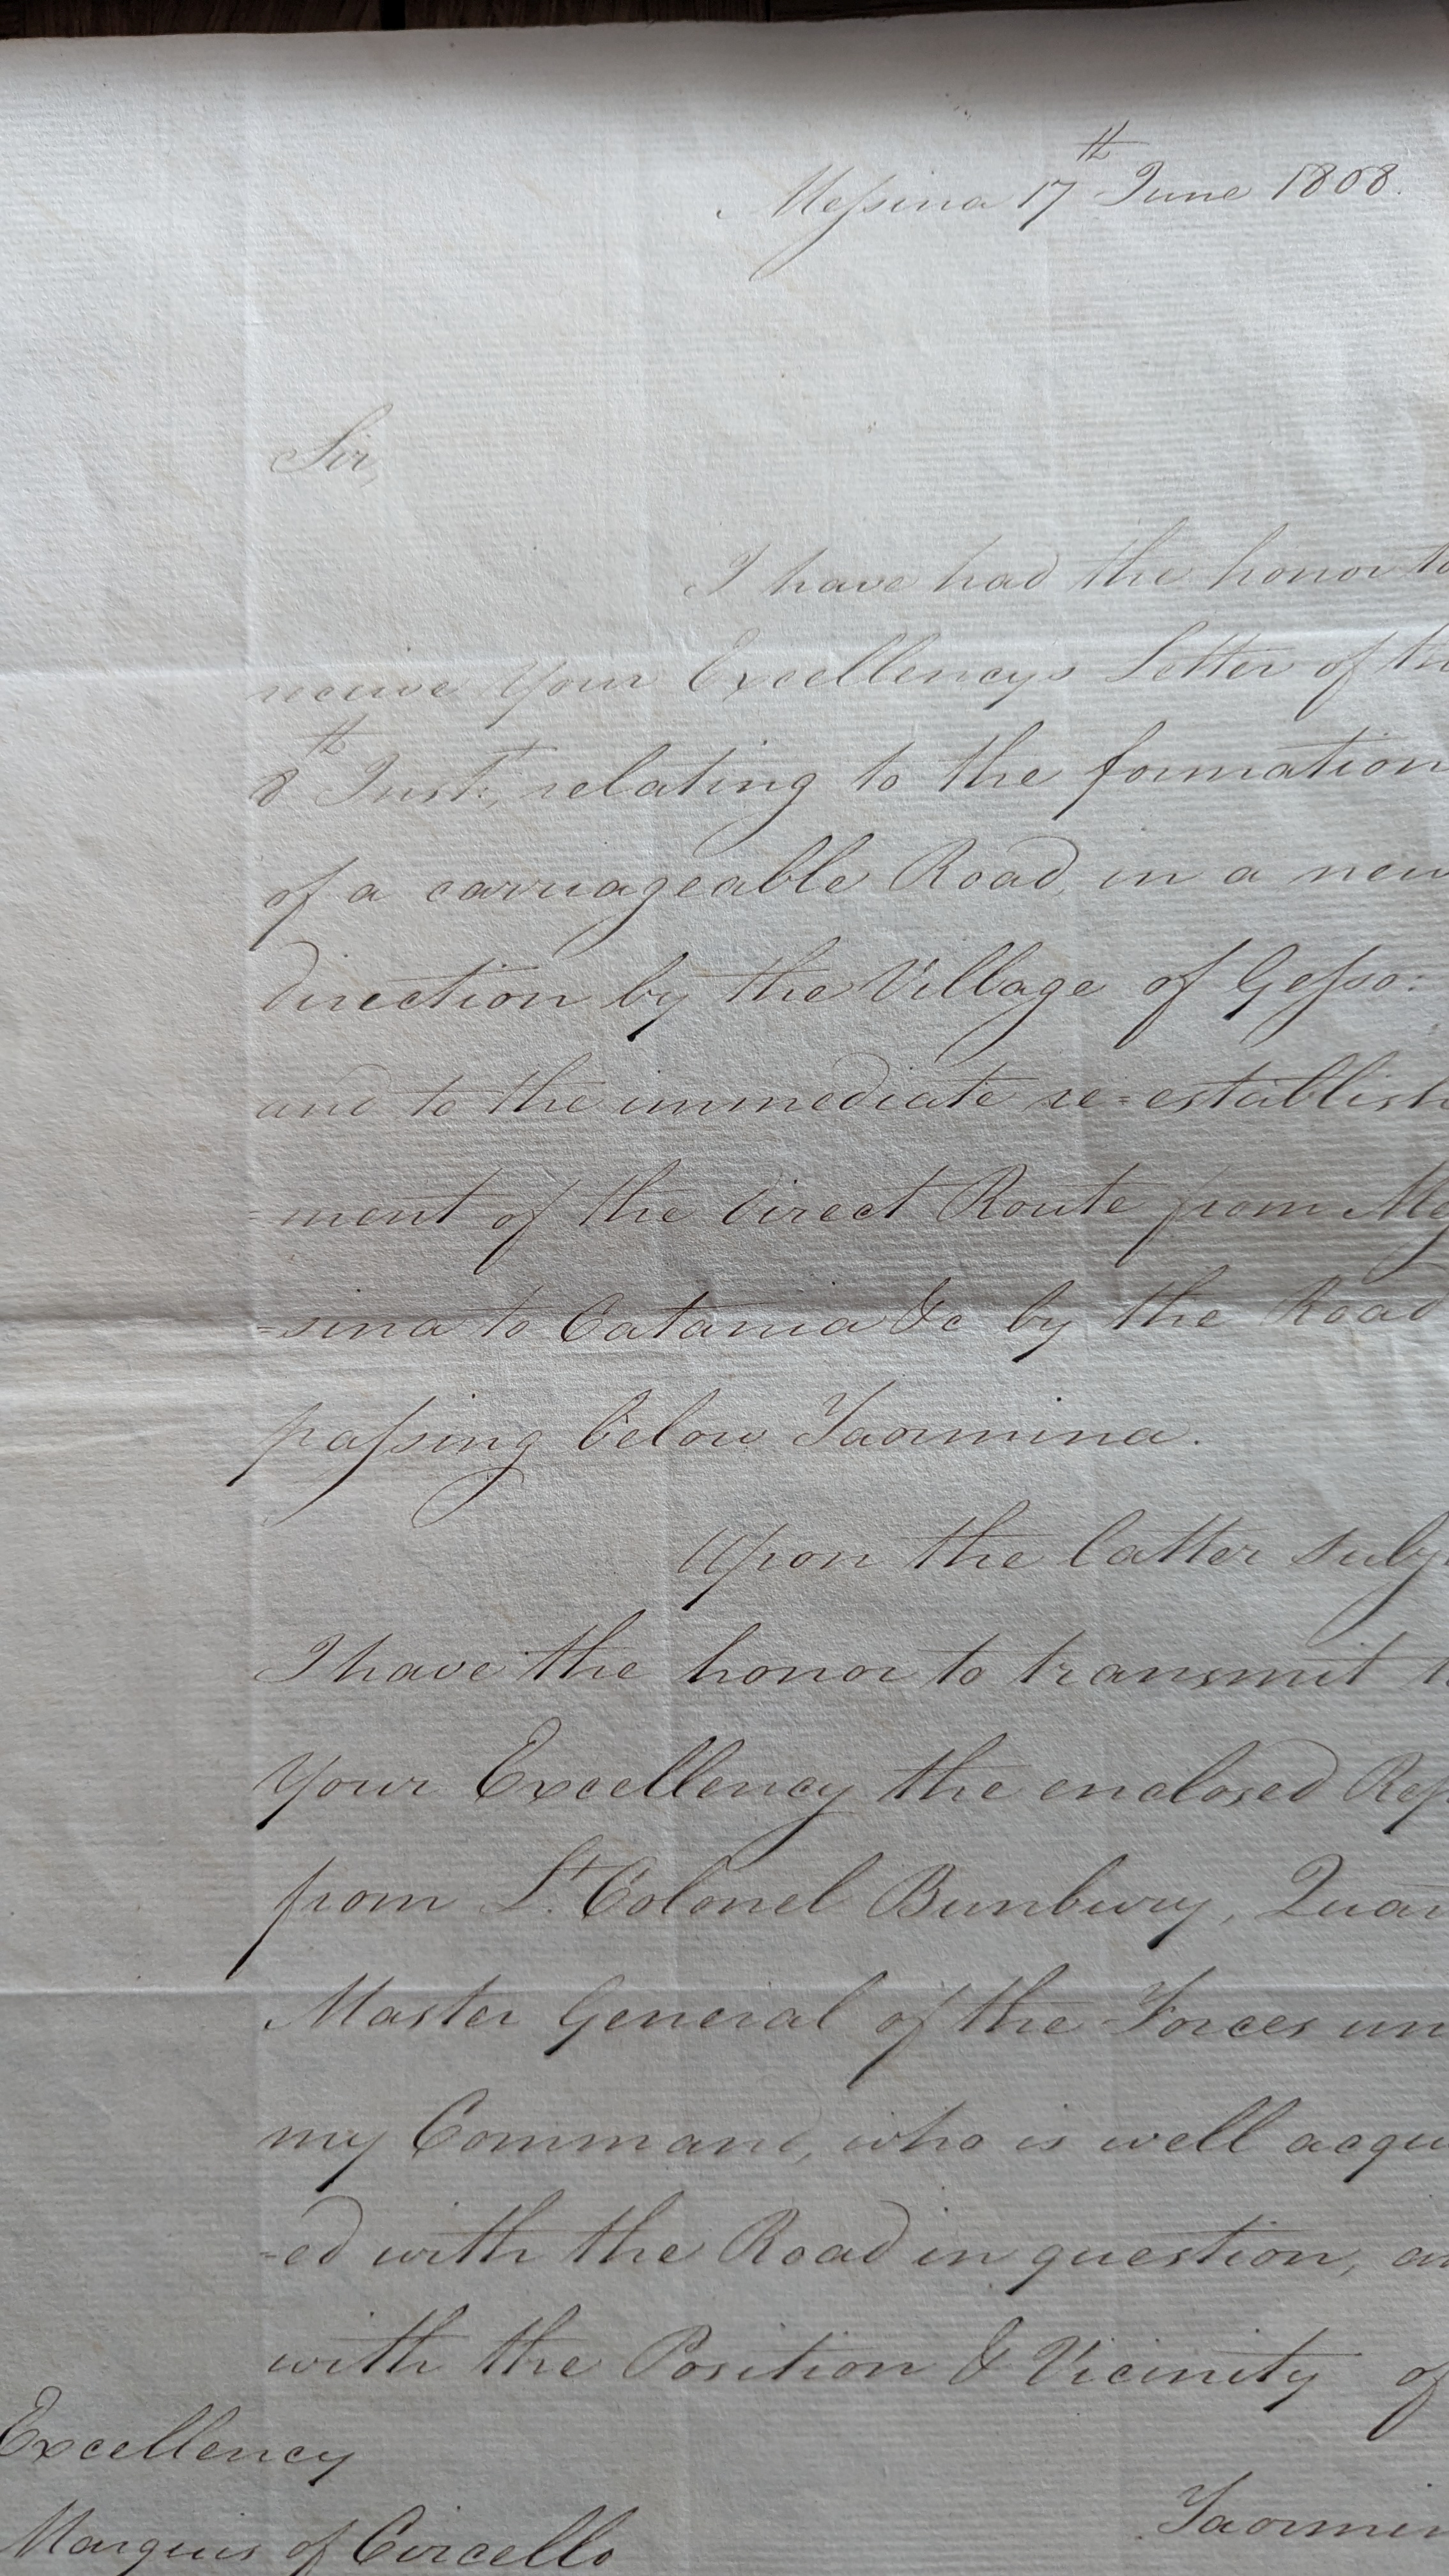 Messina 17th June 1808.
Sir,
I have had the honor to
receive Your Excellency's Letter of the
8th Inst., relating to the formation
of a carriageable Road, in a new
direction by the Village of Gesso:
and to the immediate re=establish
=ment of the direct Route from Mes
=sina to Catania &c by the Road
passing below Taormina.
Upon the latter subj
I have the honor to transmit t
Your Excellency the enclosed Rep
from Lt. Colonel Bunbury, Quar
Master General of the Forces un
my Command, who is well acqu
=ed with the Road in question, an
with the Position & Vicinity of
Excellency
Marquis of Circello
Taormin